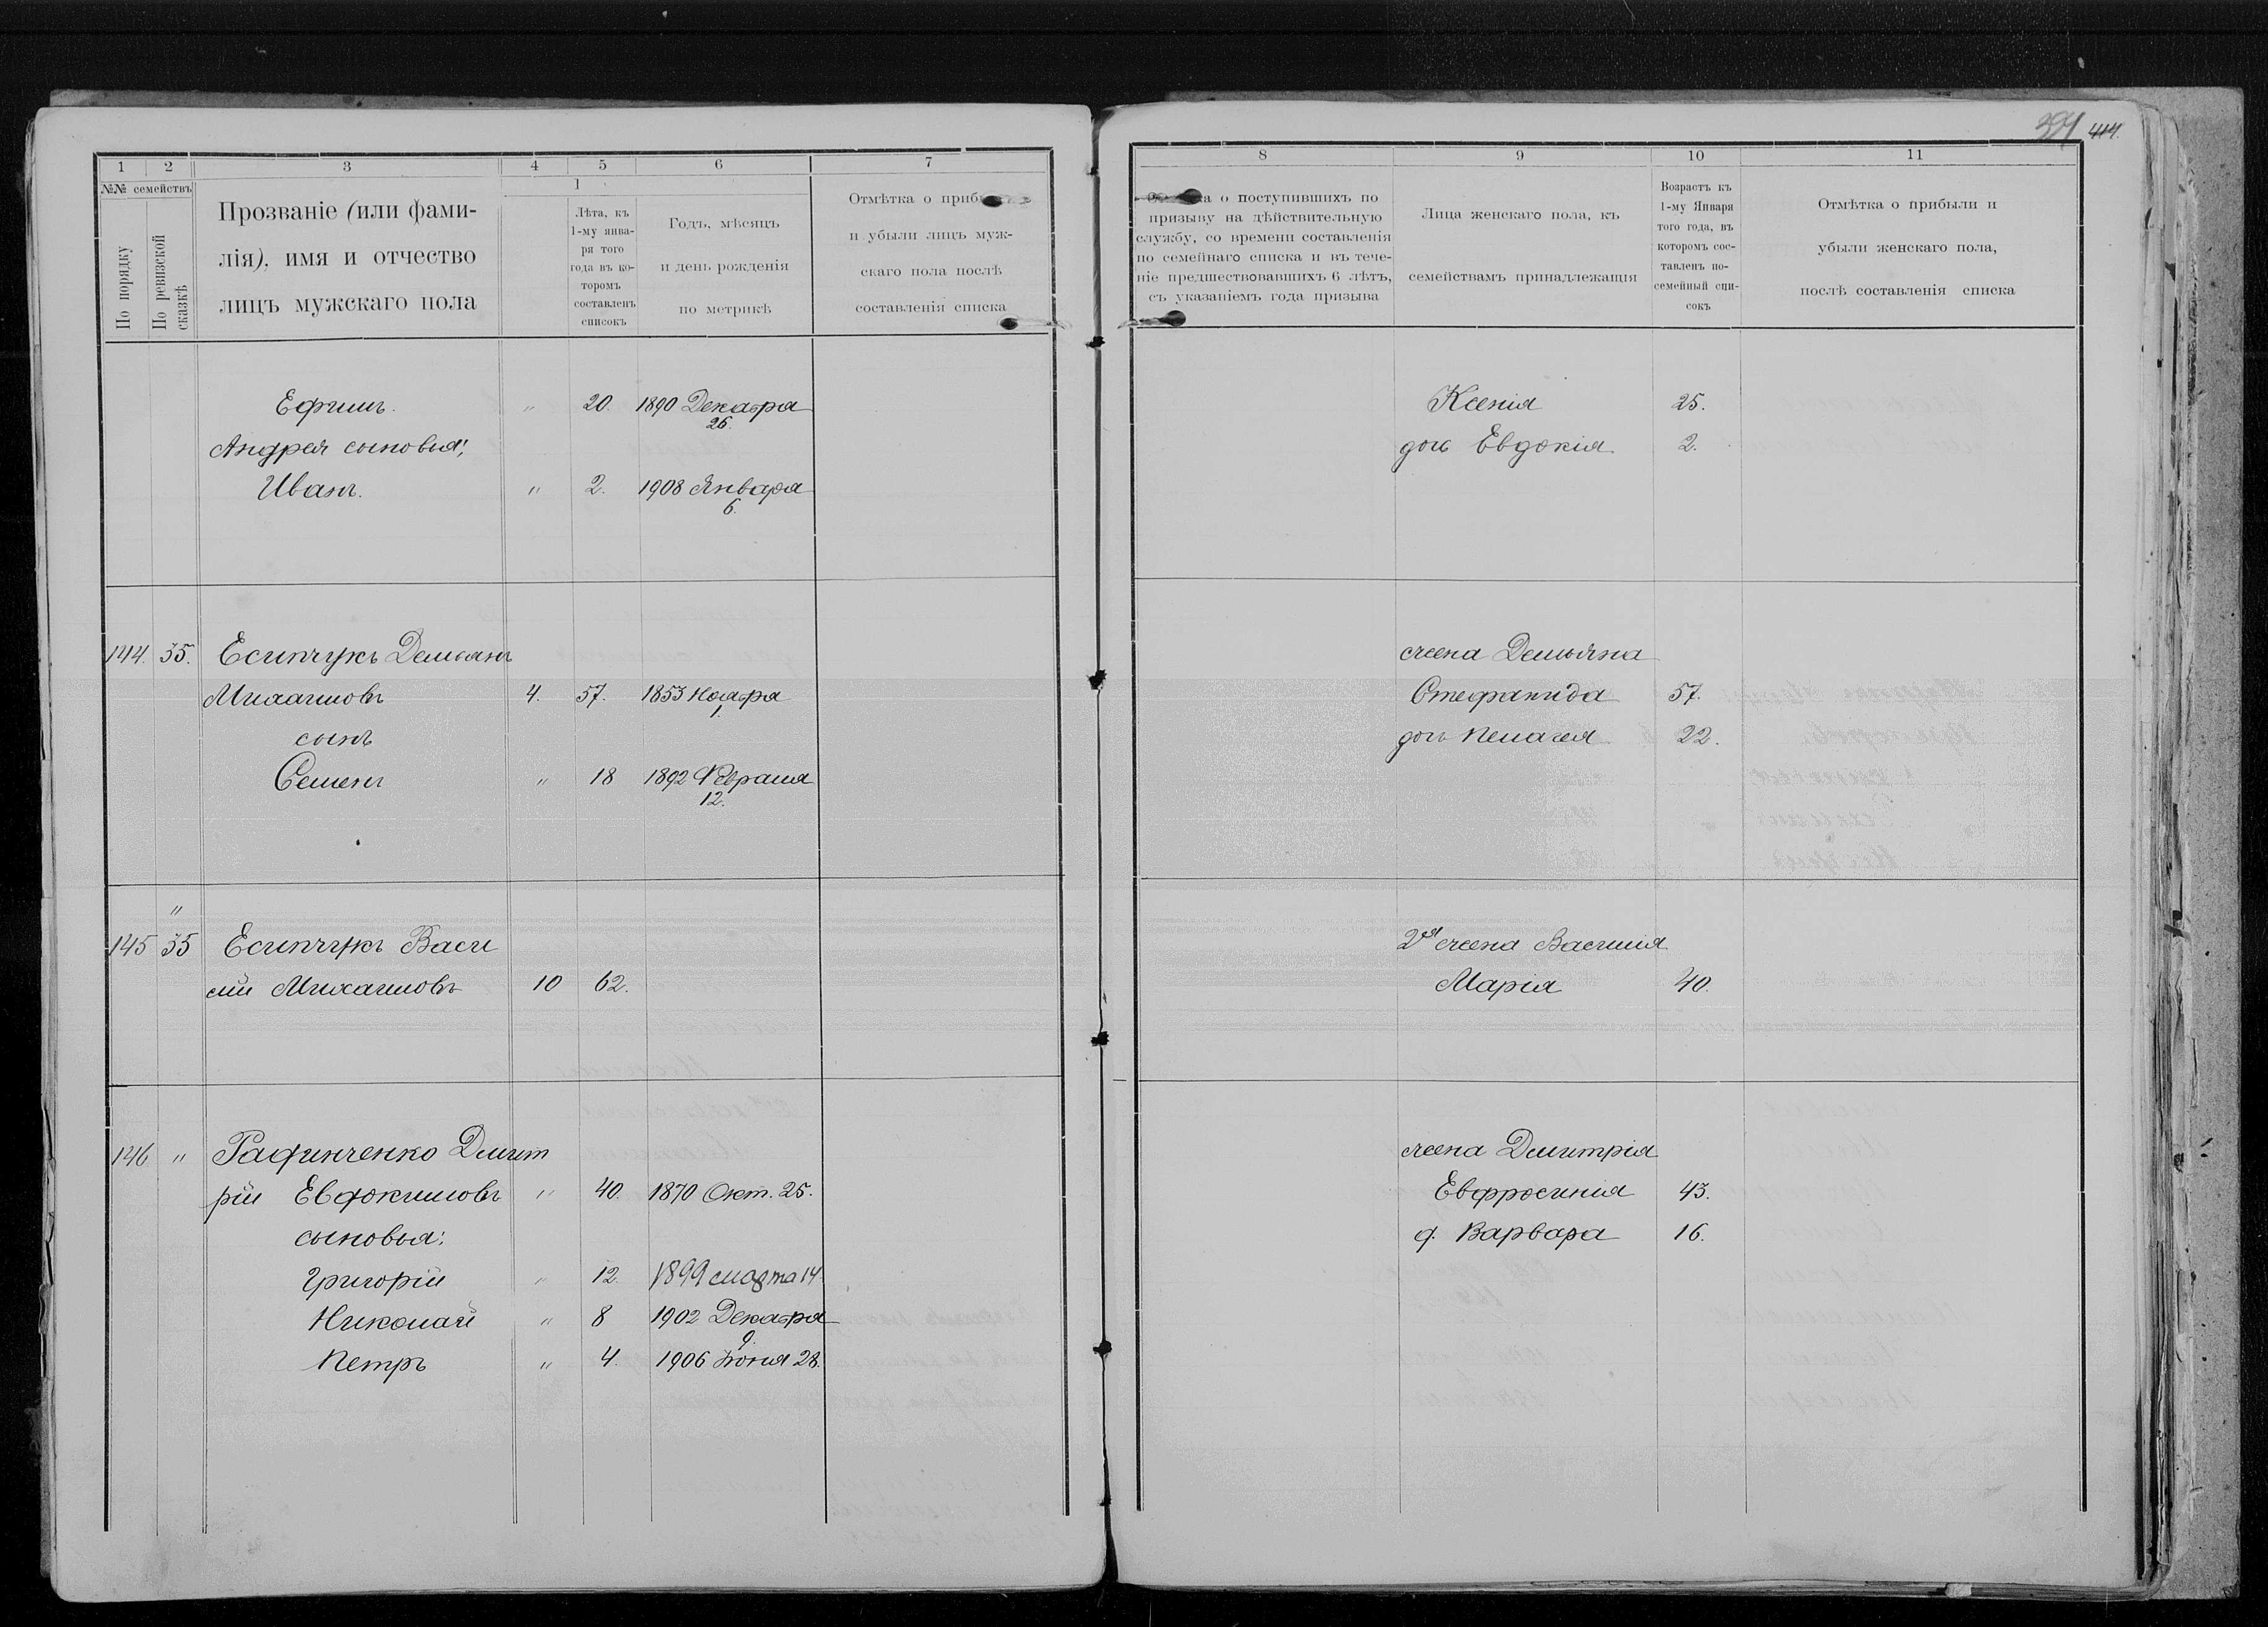 394 414.
1 2 3 4 5 6 7
№№ семействъ
По порядку
По ревизской сказкѣ
Прозваніе (или фами-
лія), имя и отчество
лицъ мужскаго пола
1
Лѣта, къ
1-му янва-
ря того
года въ ко-
торомъ
составленъ
списокъ
Годъ, мѣсяцъ
и день рожденія
по метрикѣ
Отмѣтка о
и убыли лицъ муж-
скаго пола послѣ
составленія списка
Ефимъ. " 20. 1890 Декабря
26.
Андрея сыновья:
Иванъ. " 2. 1908 Января
6.
144. 35. Есипчукъ Демьянъ
Михаиловъ 4. 57. 1853 Ноября
1.
сынъ
Семенъ " 18 1892 Февраля
12.
"
145 35 Есипчукъ Васи
лій Михаиловъ 10 62.
146 " Рафинченко Дмит
рій Евдокимовъ " 40. 1870 Окт. 25.
сыновья:
Григорій " 12. 1899 марта 14
Николай " 8 1902 Декабря
9.
Петръ " 4. 1906 Іюня 28.
8 9 10 11
о поступившихъ по
призыву на дѣйствительную
службу, со времени составленія
по семейнаго списка и въ тече-
ніе предшествовавшихъ 6 лѣтъ,
съ указаніемъ года призыва
Лица женскаго пола, къ
семействамъ принадлежащія
Возрастъ къ
1-му Января
того года, въ
которомъ сос-
тавленъ по-
семейный спи-
сокъ
Отмѣтка о прибыли и
убыли женскаго пола,
послѣ составленія списка
Ксенія 25.
дочь Евдокія 2.
жена Демьяна
Стефанида 57.
дочь Пелагея 22.
2я жена Василія
Марія 40.
жена Дмитрія
Евфросинія 43.
д. Варвара 16.